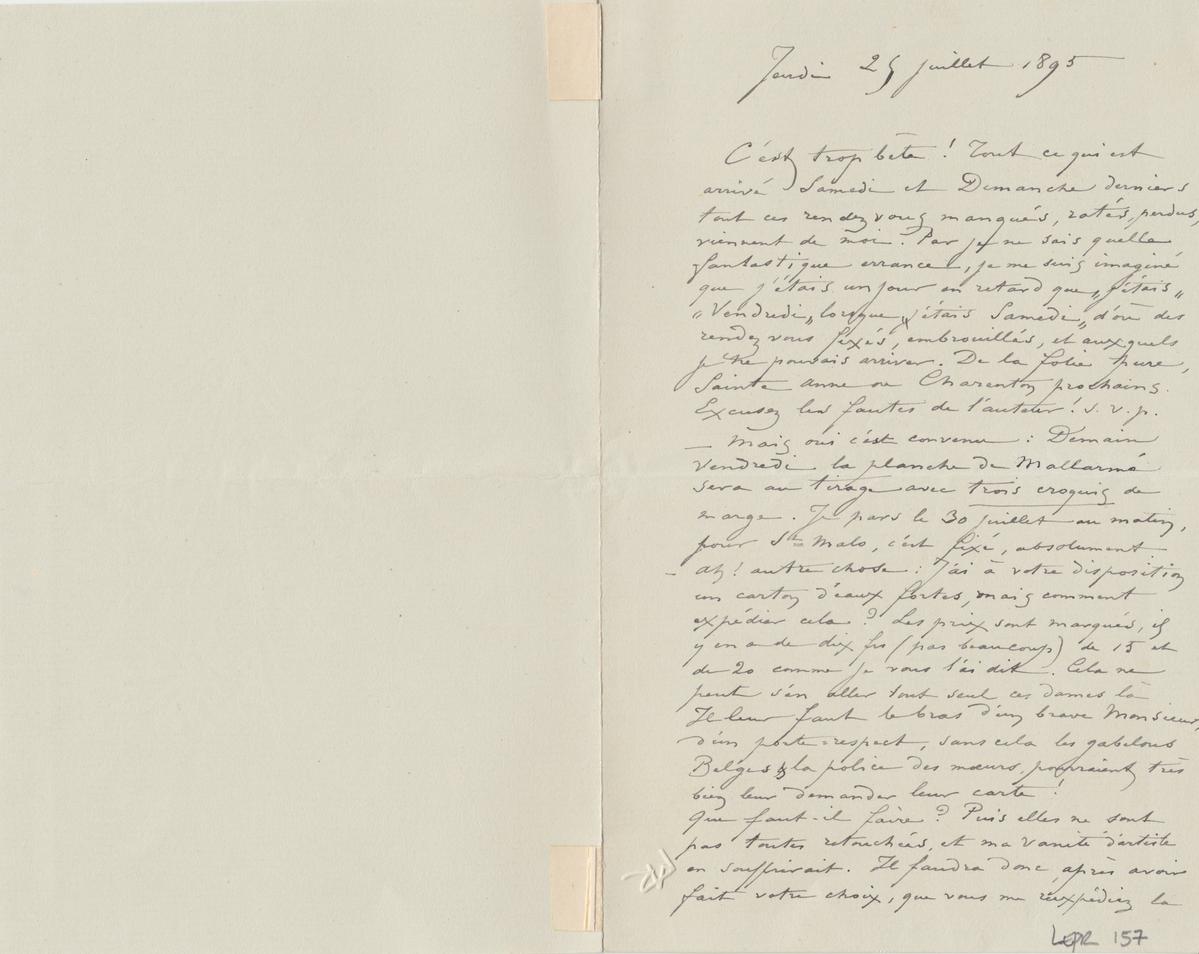 Jeudi 25 juillet 1895
C'est trop bête ! Tout ce qui est
arrivé Samedi et Demanche derniers
tout ces rendez vous manqués, ratés, perdus,
viennent de moi. Par je ne sais quelle
fantastique errance, je me suis imaginé
que j'étais un jour en retard que „j'étais„
„Vendredi„ lorsque „j'étais Samedi„ d'où des
rendez vous fixés, embrouillés, et auxquels
je ne pouvais arriver. De la folie pure,
Sainte anne ou Charenton prochains.
Excusez les fautes de l'auteur ! s. v. p.
— Mais oui c'est convenu : Demain
Vendredi la planche de Mallarmé
sera au tirage avec trois croquis de
marge. Je pars le 30 juillet au matin,
pour St Malo, c'est fixé, absolument
– ah ! autre chose : J'ai à votre disposition
un carton d'eaux fortes, mais comment
expédier cela ? Les prix sont marqués, il
y en a de dix frs (pas beaucoup) de 15 et
de 20 comme je vous l'ai dit. Cela ne
peut s'en aller tout seul ces dames là
Il leur faut le bras d'un brave Monsieur,
d'un porte-respect, sans cela les gabelous
Belges & la police des mœurs, pourraient très
bien leur demander leur carte !
Que faut-il faire ? Puis elles ne sont
pas toutes retouchées, et ma vanité d'artiste
en souffrirait. Il faudra donc, après avoir
fait votre choix, que vous me réexpédiez la
LEPR 157